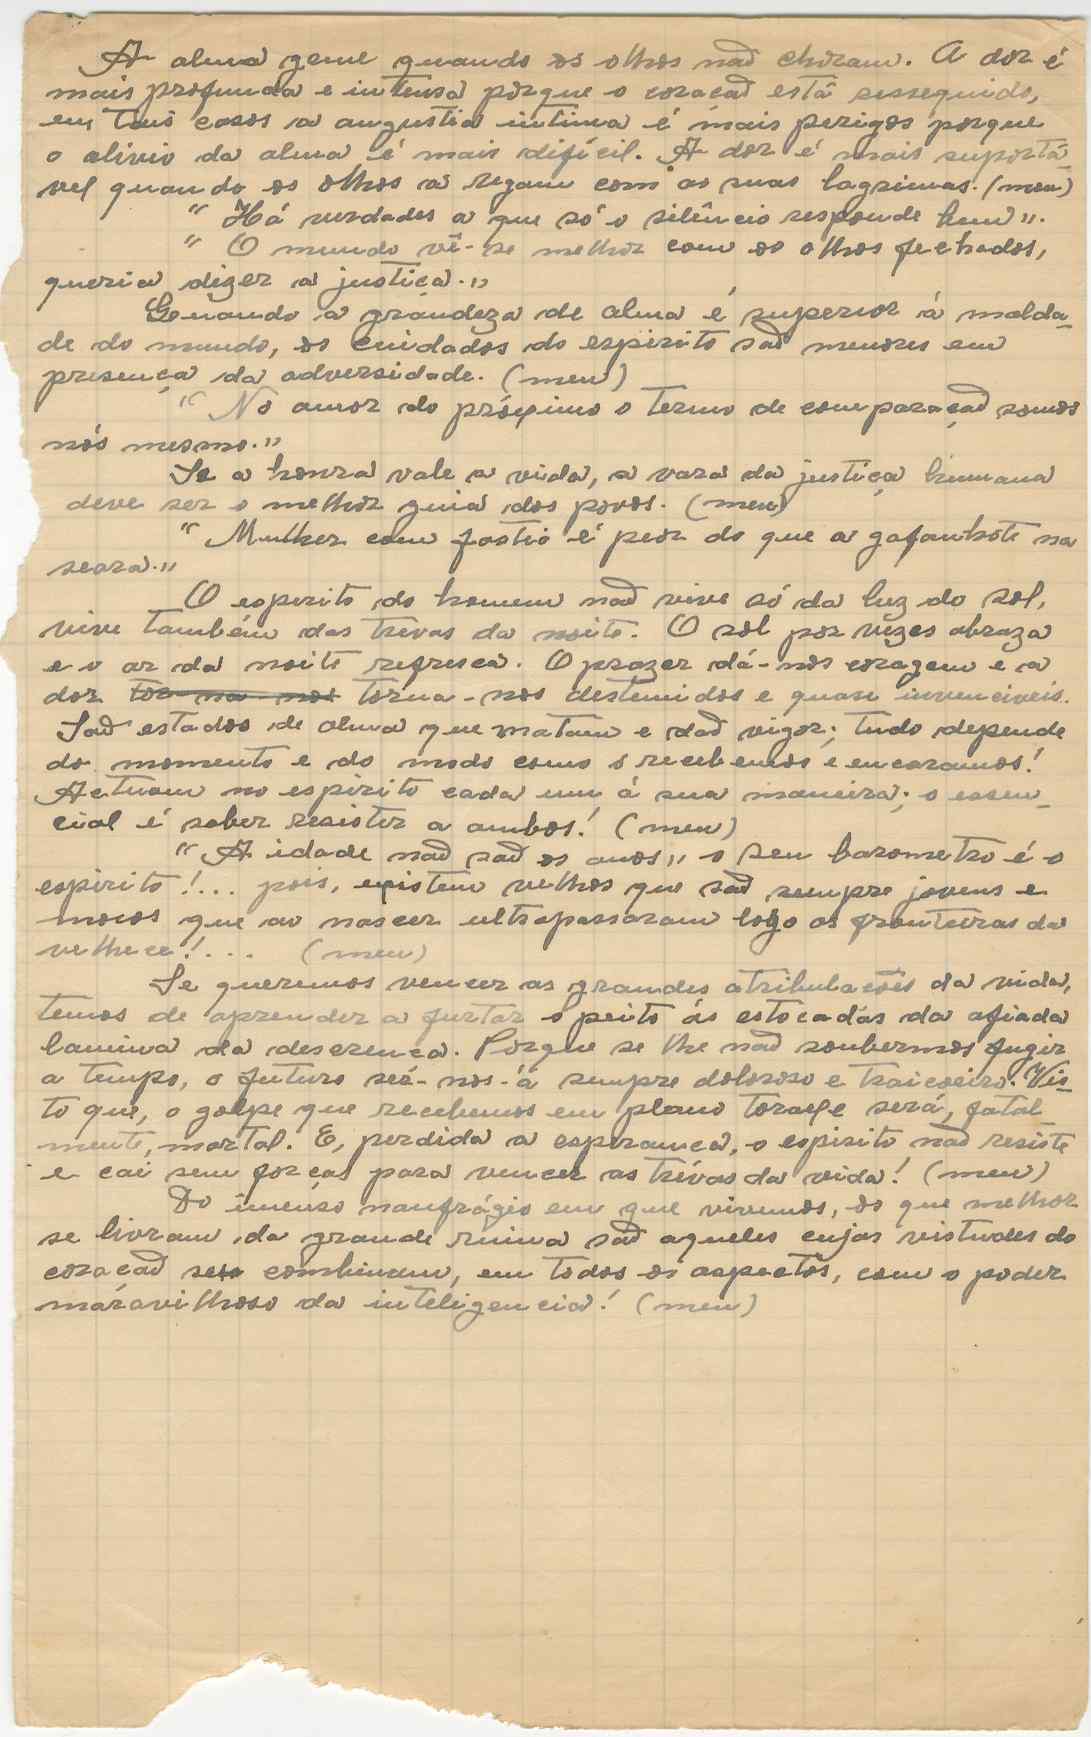 A alma geme quando os olhos não choram. A dor é
mais profunda e intensa porque o coração está ressequido,
em tais casos a angustia intima é mais perigos porque
o alivio da alma é mais difícil. A dor é mais suportá-
vel quando os olhos a regam com as suas lagrimas. (meu)
" Há verdades a que só o silêncio responde bem ".
" O mundo vê-se melhor com os olhos fechados,
queria dizer a justiça. "
Quando a grandeza de alma é superior á malda-
de do mundo, os cuidados do espirito são menores em
presença da adversidade. (meu)
" No amor do próximo o termo de comparação somos
nós mesmo. "
Se a honra vale a vida, a vara da justiça humana
deve ser o melhor guia dos povos. (meu)
" Mulher com fastio é peor do que a gafanhoto na
seara. "
O espirito do homem não vive só da luz do sol,
vive também das trevas da noite. O sol por vezes abraza
e o ar da noite refresca. O prazer dá-nos coragem e a
dor tor na nos torna-nos destemidos e quasi invenciveis.
São estados de alma que matam e dão vigor; tudo depende
do momento e do modo como o recebemos e encaramos!
Actuam no espirito cada um á sua maneira; o essen-
cial é saber resistir a ambos! (meu)
" A idade não são os anos " o seu barometro é o
espirito!... pois, existem velhos que são sempre jovens e
moços que ao nascer ultrapassaram logo as fronteiras da
velhece!... (meu)
Se queremos vencer as grandes atribulações da vida,
temos de aprender a furtar o peito ás estocadas da afiada
lamina da descrença. Porque se lhe não soubermos fugir
a tempo, o futuro ser-nos-á sempre doloroso e traiçoeiro. Vis-
to que, o golpe que recebemos em plano toraxe será, fatal
mente, mortal. E, perdida a esperança, o espirito não resiste
e cai sem forças para vencer as trévas da vida! (meu)
Do imenso naufrágio em que vivemos, os que melhor
se livram da grande ruina são aqueles cujas virtudes do
coração se combinam, em todos os aspectos, com o poder
maravilhoso da inteligencia! (meu)